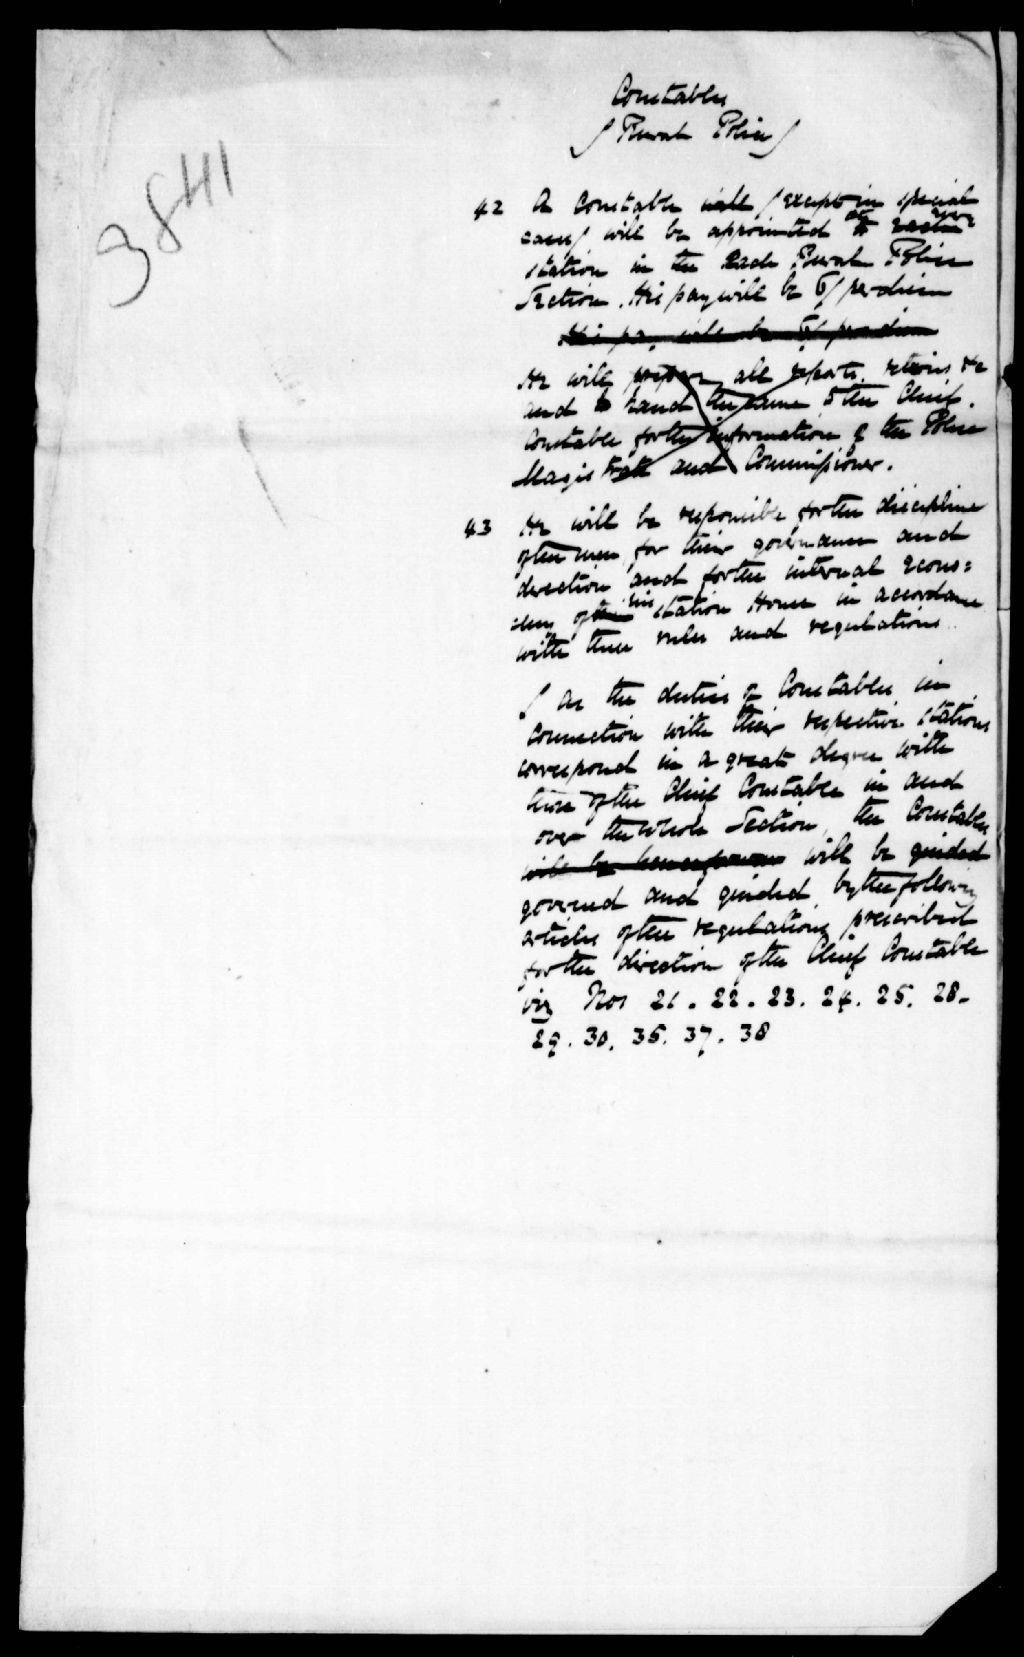 3841
Constables
( Rural Police )
42 A Constable will (except in special
cases) will be appointed to at each
station in the Each Rural Police
Section. His pay will be 6/ per diem
His pay will be 6/ per diem
He will prepare all reports, returns &c
and to hand the same to the Chief.
Constable for the information of the Police
Magistrate and Commissioner.
43 He will be responsible for the discipline
of the men, for their governance and
direction and for the internal econo=
=my of the his station House in accordance
with these rules and regulations.
( As the duties of Constables in
connection with their respective stations
correspond in a great degree with
those of the Chief Constable in and
over the whole Section, the Constables
will be will be guided
governed and guided by the following
articles of the regulations prescribed
for the direction of the Chief Constable
viz Nos 21. 22. 23. 24. 25. 28.
29. 30. 35. 37. 38